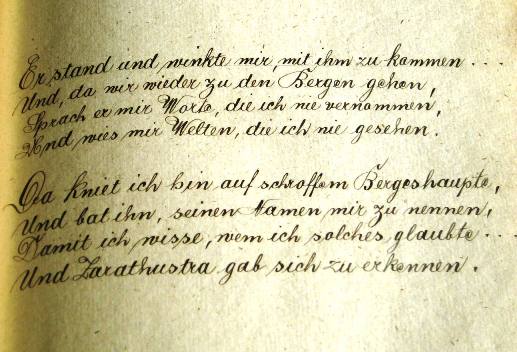 Er stand und winkte mir, mit ihm zu kommen ...
Und, da wir wieder zu den Bergen gehen,
Sprach er mir Worte, die ich nie vernommen,
Und wies mir Welten, die ich nie gesehen.
Da kniet ich hin auf schroffem Bergeshaupte,
Und bat ihn, seinen Namen mir zu nennen,
Damit ich wisse, wem ich solches glaubte ...
Und Zarathustra gab sich zu erkennen.